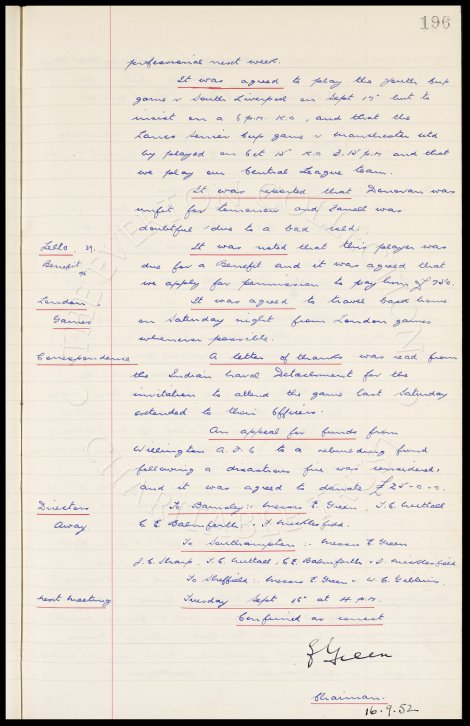 196
professional next week.
It was agreed to play the Youth Cup
game v South Liverpool on Sept 17 but to
insist on a 6 p.m. K.O, and that the
Lancs Senior Cup game v Manchester Utd
be played on Oct 15 K.O 3.15 p.m and that
we play our Central League team.
It was reported that Donovan was
unfit for tomorrow and Farrell was
doubtful due to a bad cold.
Lello
Benefit
It was noted that this player was
due for a Benefit and it was agreed that
we apply for permission to pay him £750
London
Games
It was agreed to travel back home
on Saturday night from London games
whenever possible.
Correspondence
A letter of thanks was read from
the Indian Naval Detachment for the
invitation to attend the game last Saturday
extended to their Officers.
An appeal for funds from
Wellington A.F.C to a rebuilding fund
following a disastrous fire was considered,
and it was agreed to donate £25-0-0.
Directors
Away
To Barnsley:- Messrs E. Green, T.C. Nuttall
C.E. Balmforth & F. Micklesfield.
To Southampton:- Messrs E. Green
J.C. Sharp, T.C. Nuttall, C.E. Balmforth & F. Micklesfield
To Sheffield:- Messrs E. Green & W.C. Gibbins.
Next Meeting
Tuesday Sept 16 at 4 p.m.
Confirmed as correct
E Green
Chairman.
16.9.52